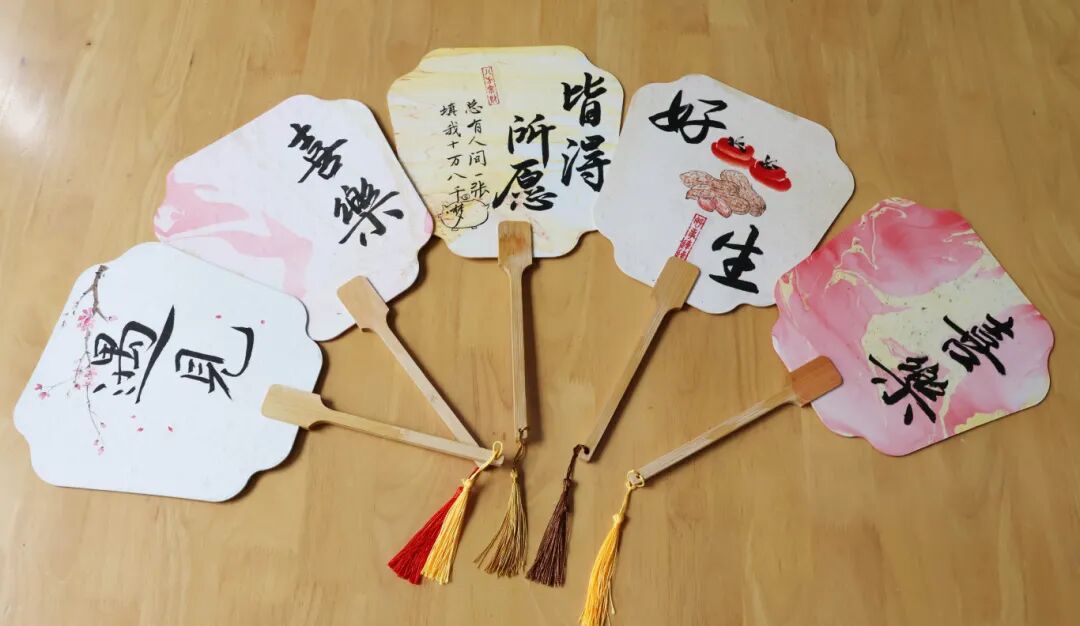 遇見
喜樂
皆得
所愿
总有人间一张
填我十万八千梦
好
生
喜樂